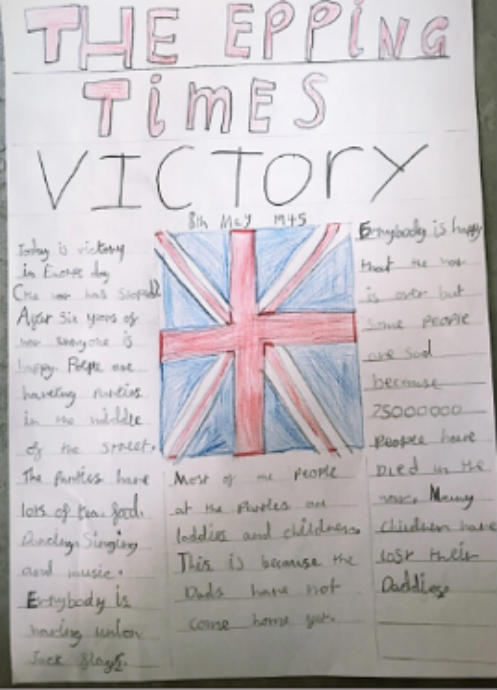 THE EPPING
TiMES
VICTORY
8th May 1945
Today is victory
in Europe day
the war has stoped
After six years of
war everyone is
happy. People are
haveing parties
in the middle
of the street.
The parties have
lots of tea, food,
Dancing, Singing
and music.
Erybody is
having union
Jack flags.
Most of the people
at the parties are
laddies and children.
This is because the
Dads have not
come home yet.
Erybody is happy
that the war
is over but
some people
are sad
because
75000000
people have
Died in the
war. Many
children have
lost their
Daddies